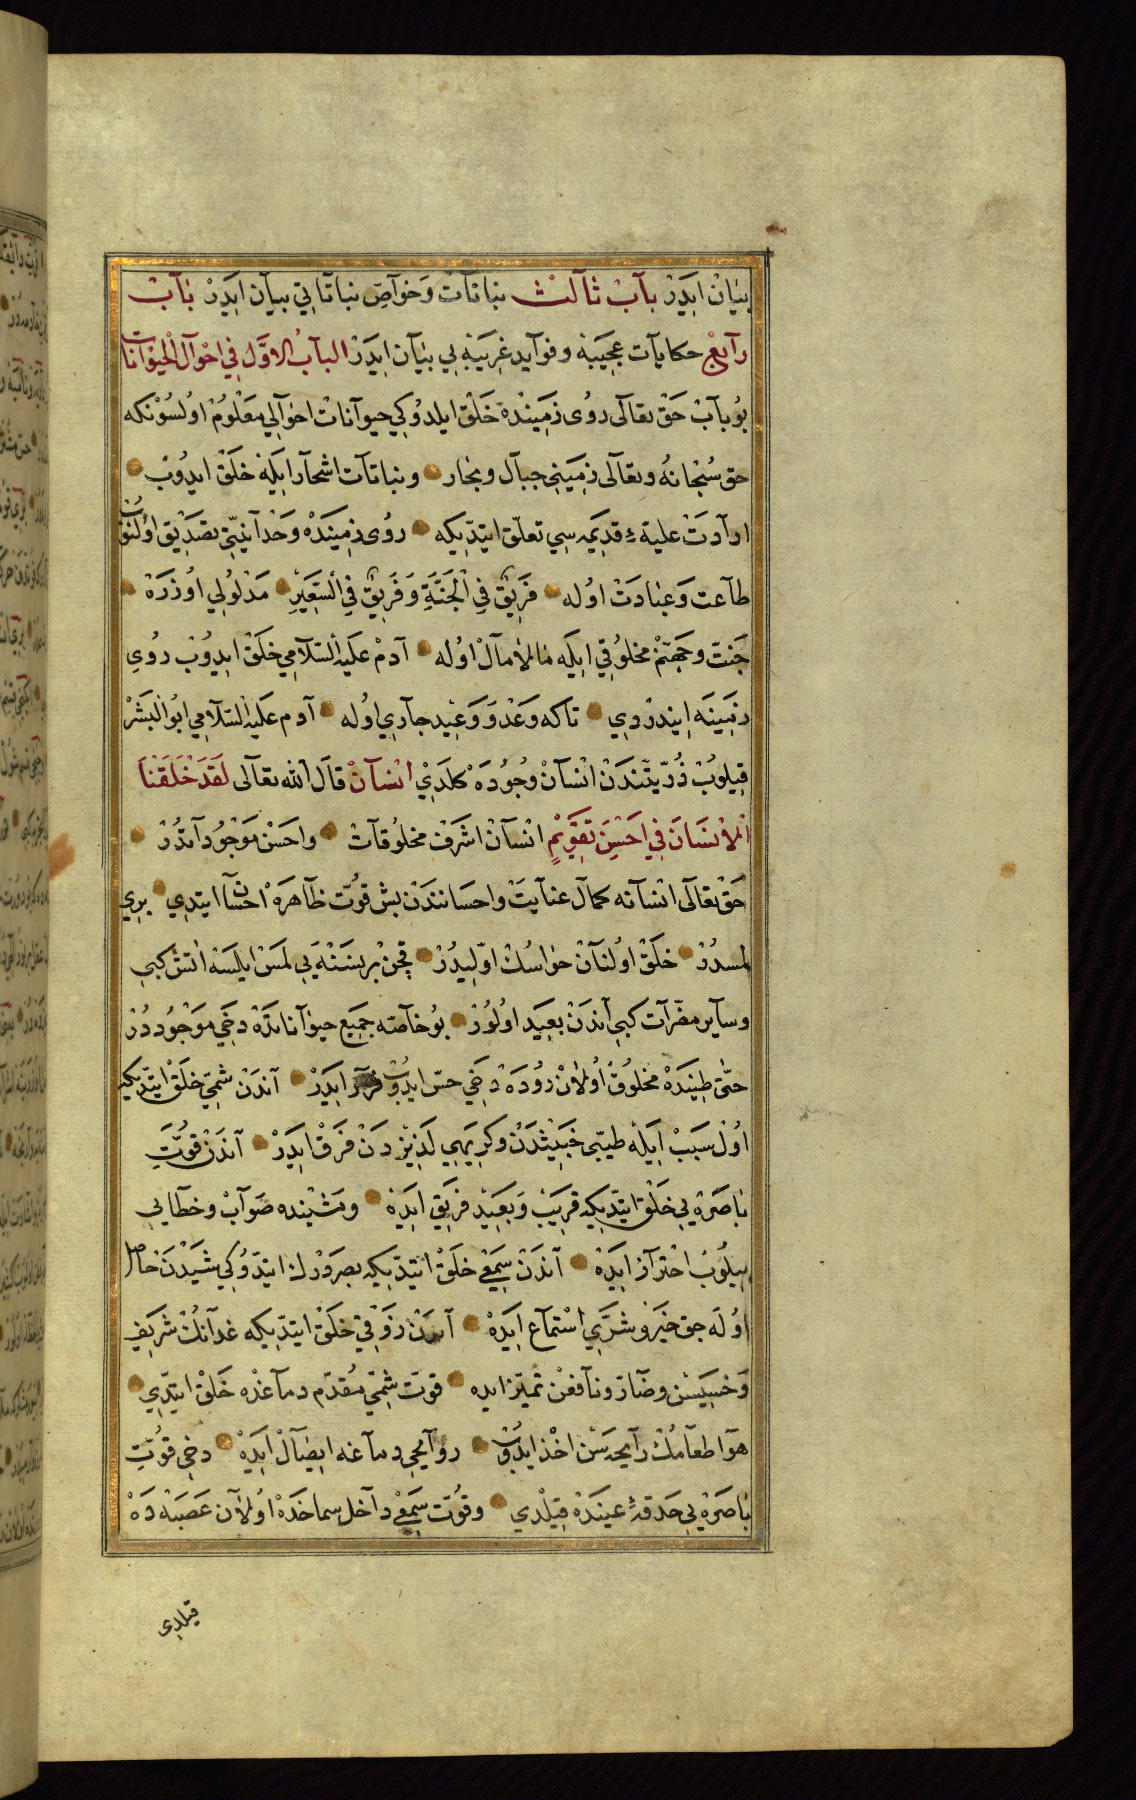 بيان ايدر باب ثالث نباتات وخواص نباتاتي بيان ايدر باب
رابع حكايات عجيبه وفوايد غريبه يي بيان ايدر الباب الاوّل في احوال الحيوانات
بوباب حق تعالى روى زمينده خلق ايلدوكي حيوانات احوالي معلوم اولسونكه
حق سبحانه وتعالى زميني جبال وبحار ونباتات اشجار ايله خلق ايدوب
ارادت عليۀ قديمه سي تعلّق ايتديكه روى زمينده وحدانيتي تصديق اولنوب
طاعت وعبادت اوله فَرِيقٌ فِي الْجَنَّةِ وَفَرِيقٌ فِي السَّعِيرِ مدلولي اوزره
جنّت وجهنّم مخلوقي ايله مالامال اوله آدم عليه السّلامي خلق ايدوب روى
زمينه ايندردي تاكه وعد و وعيد جاري اوله آدم عليه السّلامي ابو البشر
قيلوب ذرّيتندن انسان وجوده كلدي انسان قال الله تعالى لَقَدْ خَلَقْنَا
الْاِنْسَانَ فِي اَحْسَنِ تَقْوِيمٍ انسان اشرف مخلوقات واحسن موجوداتدر
حق تعالى انسانه كمال عنايت واحسانندن بش قوّت ظاهره احسان ايتدي بري
لمسدر خلق اولنان حواسك اوّليدر قچن بر نسنه يي لمس ايلسه اتش كبي
وساير مضرّات كبي آندن بعيد اولور بو خاصّه جميع حيواناتده دخي موجوددر
حتّى طينده مخلوق اولان دوده دخي حسّ ايدوب فرار ايدر آندن شمّي خلق ايتديكه
اول سبب ايله طيبي خبيثدن وكريهي لذيزدن فرق ايدر آندن قوّت
باصره يي خلق ايتديكه قريب وبعيد فريق ايده ومشينده صواب وخطايي
بيلوب احتراز ايده آندن سمعي خلق ايتديكه بصر درك ايتدوكي شيدن حاصل
اوله حق خير و شرّي استماع ايده آندن ذوقي خلق ايتديكه غدانك شريفي
وخسيسن وضارّ ونافعن تميّز ايده قوّت شمّي مقدّم دماغده خلق ايتدي
هوا طعامك رايحه سن اخذ ايدوب روايحي دماغه ايصال ايده دخي قوّت
باصره يي حدقۀ عينده قيلدي وقوّت سمعي داخل سماخده اولان عصبه ده
قيلدى